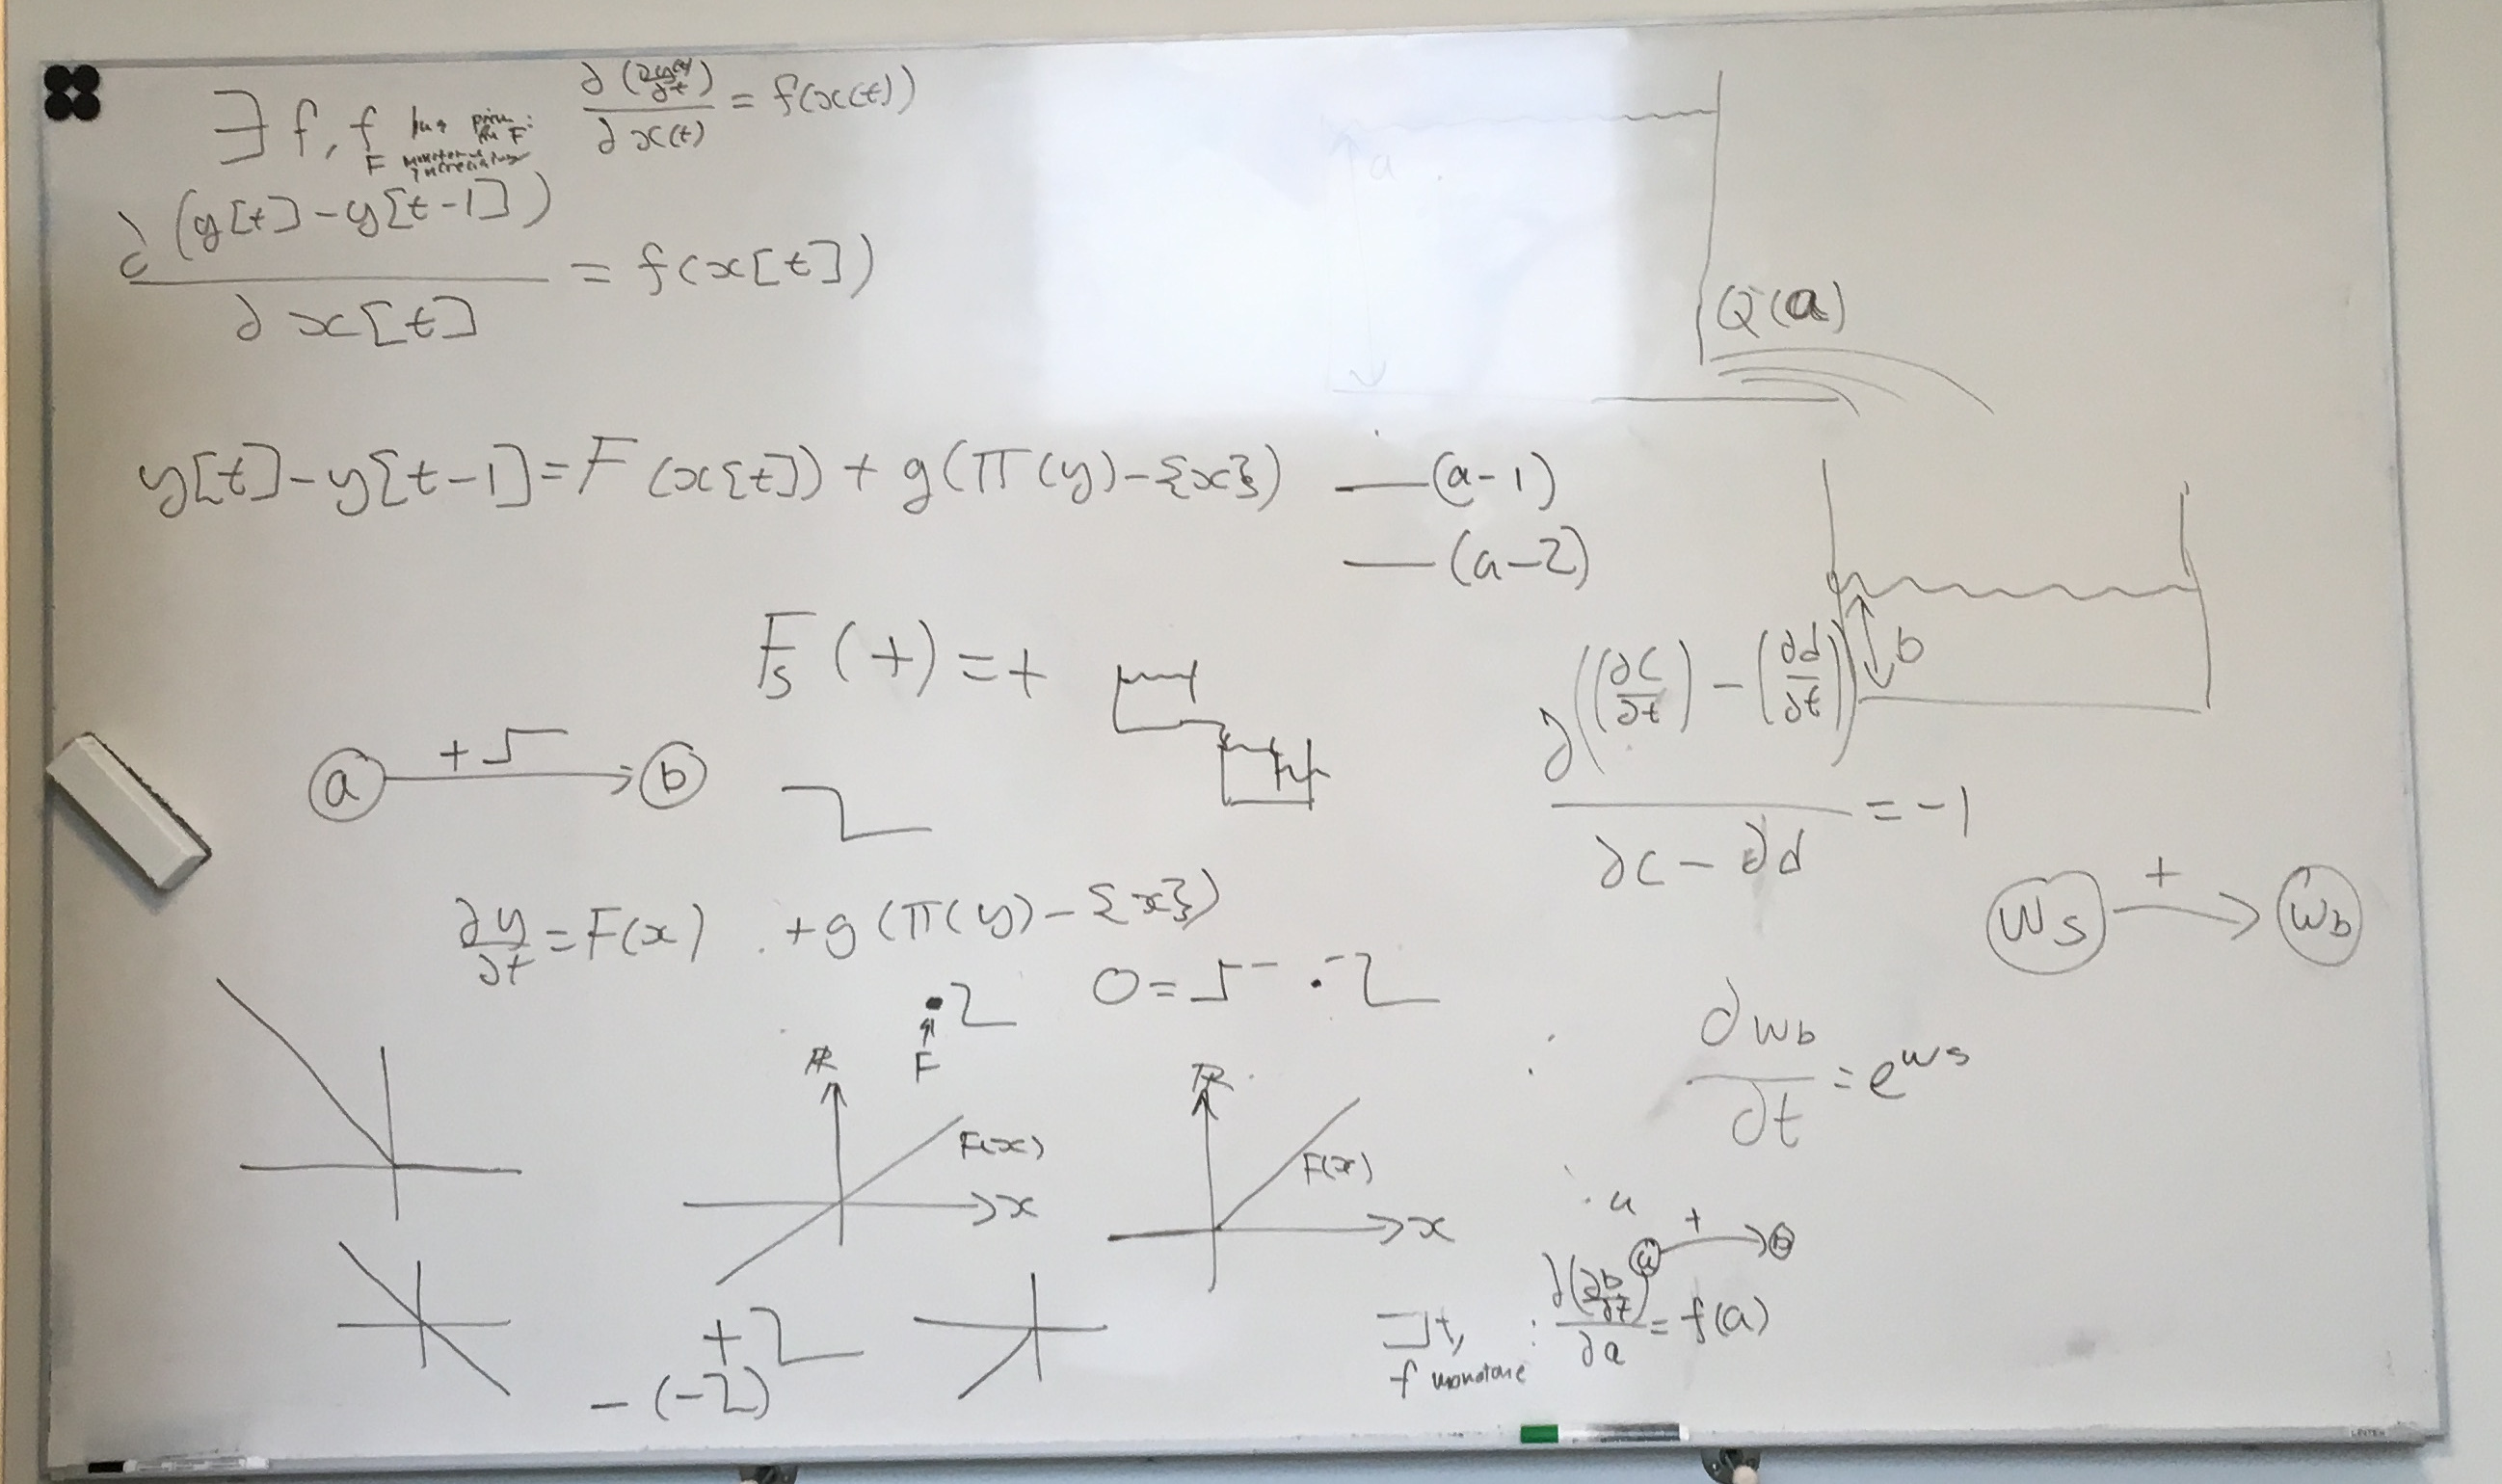 ∃ f, f has prim: fn F
F monotone increasing
∂(∂y(t)/∂t) / ∂x(t) = f(x(t))
∂(y[t]-y[t-1]) / ∂x[t] = f(x[t])
a
Q(a)
y[t]-y[t-1]=F(x[t])+g(π(y)-{x}) —(a-1)
—(a-2)
Fs(+)=+
b
a + b
∂((∂c/∂t)-(∂d/∂t)) / ∂c-∂d = -1
Ws + Wb
∂y/∂t=F(x) +g(π(y)-{x})
0=
F
∂wb/∂t = e^ws
R F(x) x
R F(x) x
a
a + b
+
-(-2)
∃f,
f monotone
: ∂(∂b/∂t)/∂a = f(a)